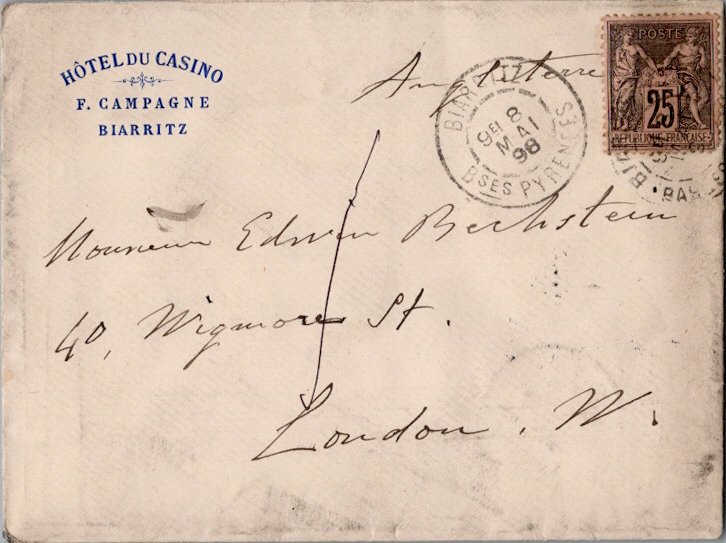 HÔTEL DU CASINO
F. CAMPAGNE
BIARRITZ
Angleterre
BIARRITZ
9E/ 8
MAI
98
BSES PYRENÉES
POSTE
25
REPUBLIQUE FRANÇAISE
Monsieur Edwin Bechstein
40, Wigmore St.
London. W.